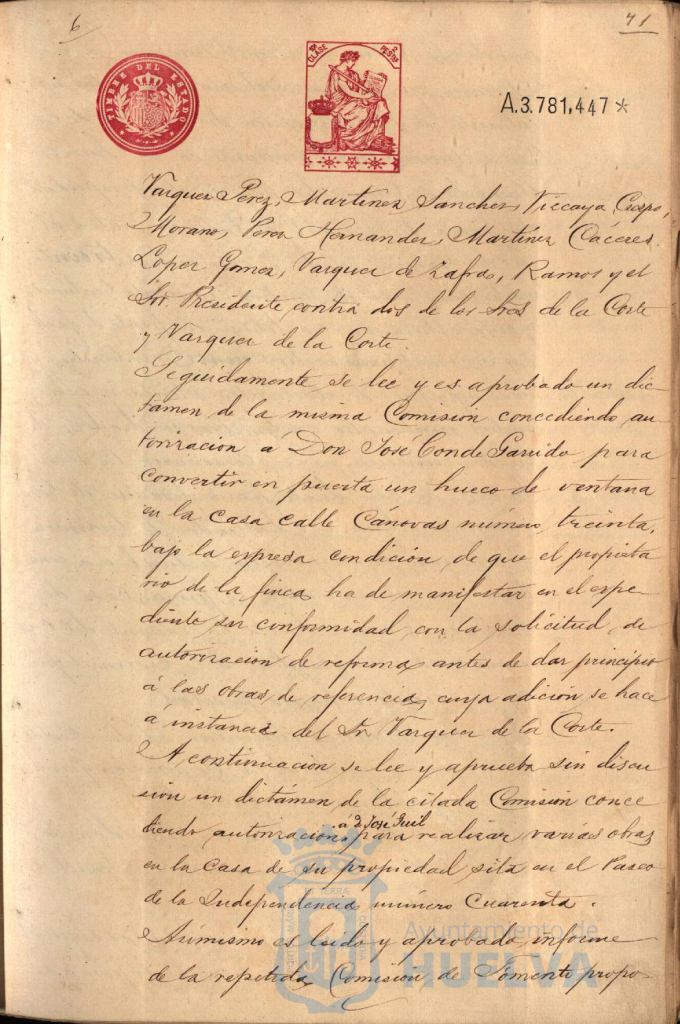 6
71
TIMBRE DEL ESTADO
10ª CLASE 2 PESTAS
A.3.781,447*
Vazquez Perez, Martinez Sanchez, Vizcaya Crespo,
Morano, Perez Hernandez, Martínez Cáceres,
López Gomez, Vazquez de Zafra, Ramos y el
Sr. Presidente contra dos de los Sres de la Corte
y Vazquez de la Corte.
Seguidamente se lee y es aprobado un dic-
tamen de la misma Comisión concediendo au-
torizacion á Don José Conde Garrido para
convertir en puerta un hueco de ventana
en la casa calle Cánovas número treinta,
bajo la expresa condición de que el propieta
rio de la finca ha de manifestar en el expe-
diente su conformidad con la solicitud de
autorización de reforma antes de dar principio
á las obras de referencia, cuya adición se hace
á instancia del Sr Vazquez de la Corte.
A continuacion se lee y aprueba sin discu-
sión un dictámen de la citada Comisión conce
diendo autorizacion á D. José para realizar varias obras
en la casa de su propiedad sita en el Paseo
de la Independencia número cuarenta.
Asimismo es leido y aprobado informe
de la repetida Comisión de Fomento propo-
Ayuntamiento de
HUELVA